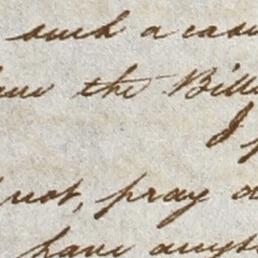 such a case
the Bill
I
not, pray d
have anyt